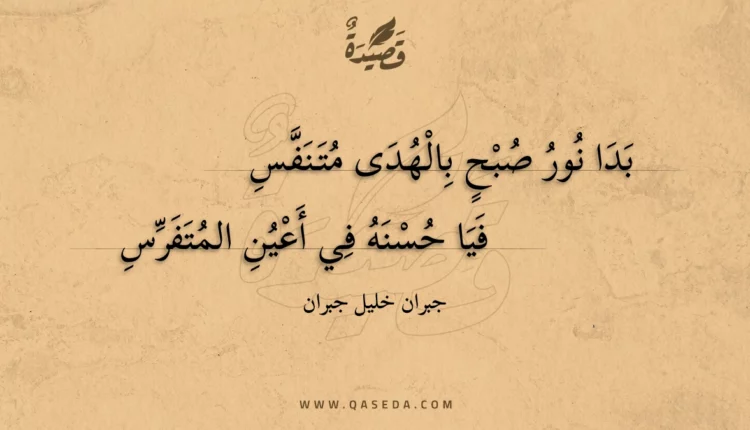 قَصِيدَةٌ
بَدَا نُورُ صُبْحٍ بِالْهُدَى مُتَنَفَّسِ
فَيَا حُسْنَهُ فِي أَعْيُنِ المُتَفَرِّسِ
جبران خليل جبران
WWW.QASEDA.COM